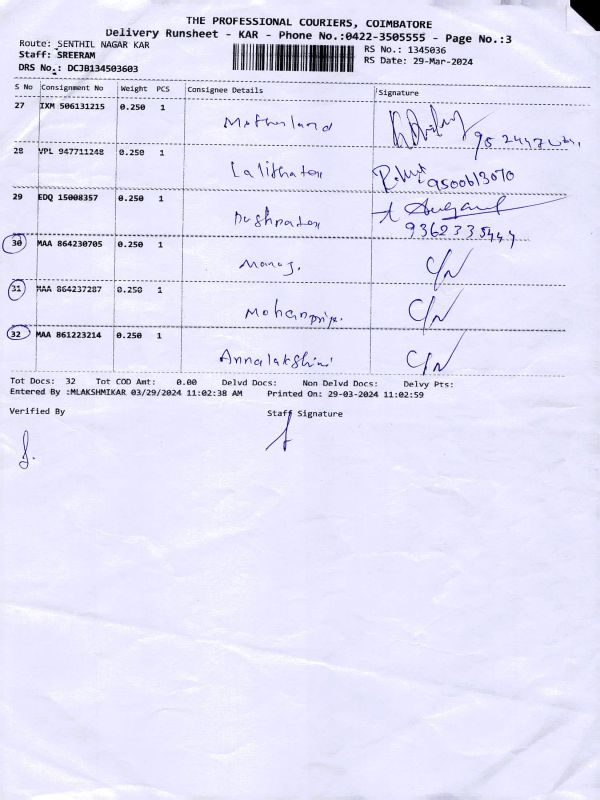 THE PROFESSIONAL COURIERS, COIMBATORE
Delivery Runsheet - KAR - Phone No.:0422-3505555 - Page No.:3
Route: SENTHIL NAGAR KAR
RS No.: 1345036
Staff: SREERAM
RS Date: 29-Mar-2024
DRS No.: DCJB134503603
S No Consignment No Weight PCS Consignee Details Signature
27 IXM 506131215 0.250 1 Motherland
28 VPL 947711248 0.250 1 Lalitha 9500613070
29 EDQ 15008357 0.250 1
9362335444
30 MAA 864230705 0.250 1 Manoj. C/N
31 MAA 864237287 0.250 1 Mohanpriya. C/N
32 MAA 861223214 0.250 1 Annalakshmi C/N
Tot Docs: 32 Tot COD Amt: 0.00 Delvd Docs: Non Delvd Docs: Delvy Pts:
Entered By :MLAKSHMIKAR 03/29/2024 11:02:38 AM Printed On: 29-03-2024 11:02:59
Verified By Staff Signature